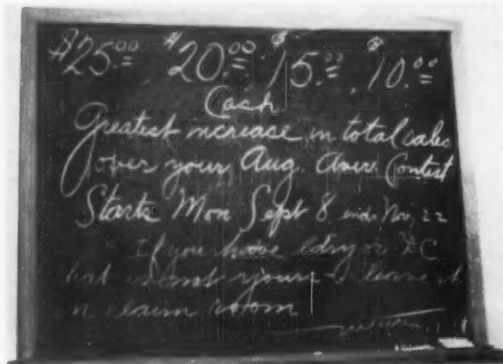 $25.00 $20.00 $15.00, $10.00
Cash
Greatest increase in total sales
over your Aug. Aver. Contest
Starts Mon Sept 8 ends Nov 22
If you have ldry or DC
that isn't yours leave it
in claim room